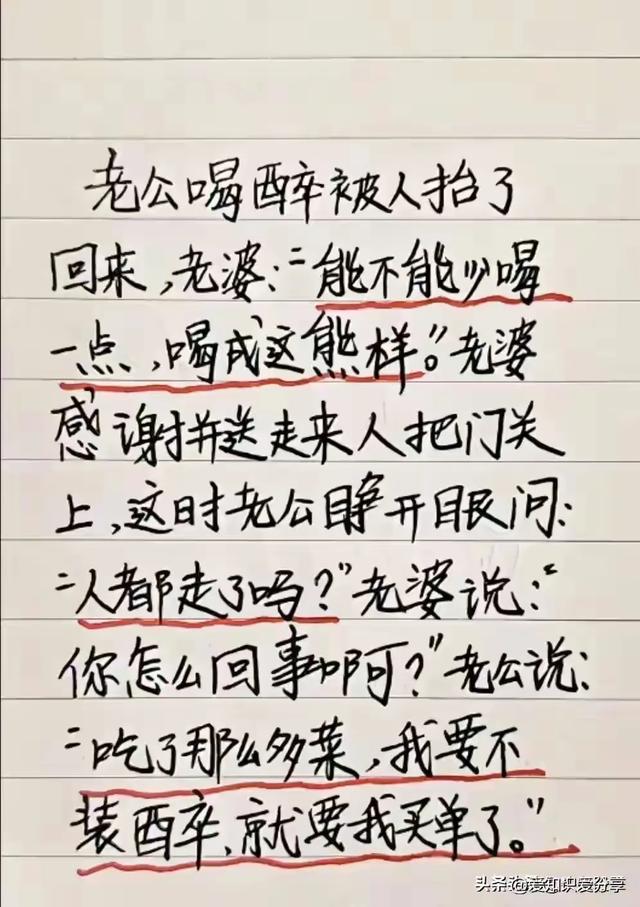 老公喝醉被人抬了
回来,老婆:“能不能少喝
一点,喝成这熊样。”老婆
感谢并送走来人把门关
上,这时老公睁开眼问:
“人都走了吗?”老婆说:“
你怎么回事啊?”老公说:
“吃了那么多菜,我要不
装醉,就要我买单了。”
头条@爱知识爱分享